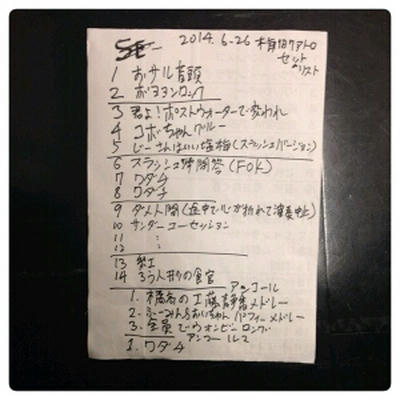 SE 2014.6.26 梅田クアトロ
セットリスト
1 おサル音頭
2 ボヨヨンロック
3 君よ!ポストウォーターで変われ
4 コボちゃんグルー
5 じーさんはいい塩梅(スラッシュバージョン)
6 スラッシュ禅問答(FOK)
7 ワダチ
8 ワダチ
9 ダメ人間(途中で心が折れて演奏中止)
10 サンダーユーセッション
11 :
12 :
13 梨工
14 3人
アンコール
1. 橘高の工藤静香メドレー
2. ふーみん&おいちゃん パフィーメドレー
3. 全員でウォンビーロング
アンコール2
1. ワダチ